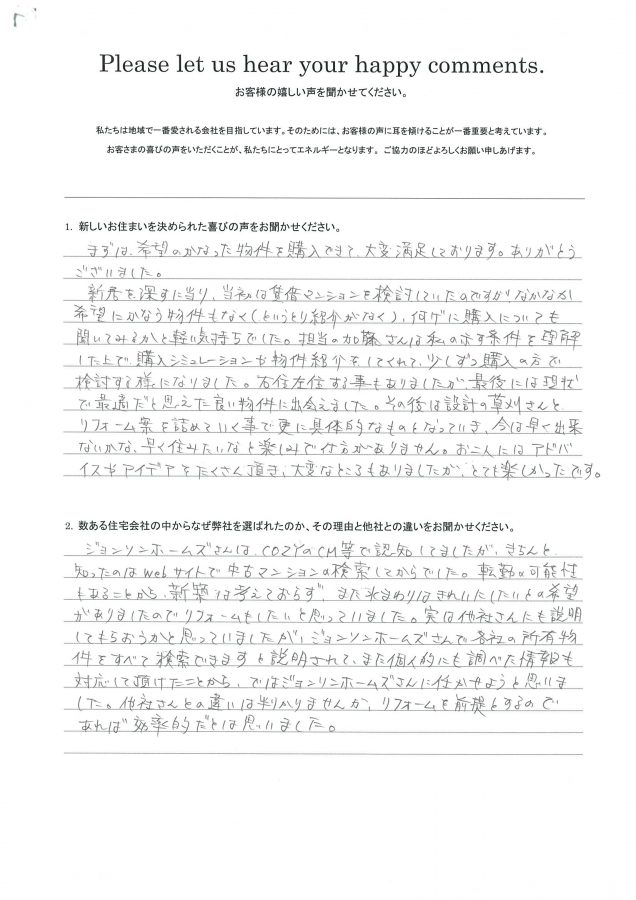 Please let us hear your happy comments.
お客様の嬉しい声を聞かせてください。
私たちは地域で一番愛される会社を目指しています。そのためには、お客様の声に耳を傾けることが一番重要と考えています。
お客さまの喜びの声をいただくことが、私たちにとってエネルギーとなります。ご協力のほどよろしくお願い申しあげます。
1. 新しいお住まいを決められた喜びの声をお聞かせください。
まずは、希望のかなった物件を購入できて、大変満足しております。ありがとう
ございました。
新居を探すに当り、当初は賃借マンションを検討していたのですがなかなか
希望にかなう物件もなく(というより紹介がなく)、何ゲに購入についても
聞いてみるかと軽い気持ちでした。担当の加藤さんは私の示す条件を理解
した上で、購入シミュレーションや物件紹介をしてくれて、少しずつ購入の方で
検討する様になりました。右往左往する事もありましたが、最後には現状
で最適だと思えた良い物件に出会えました。その後は設計の草刈さんと
リフォーム案を詰めていく事で更に具体的なものとなっていき、今は早く出来
ないかな、早く住みたいなと楽しみで仕方がありません。お二人にはアドバ
イスやアイデアをたくさん頂き、大変なところもありましたが、とても楽しかったです。
2. 数ある住宅会社の中からなぜ弊社を選ばれたのか、その理由と他社との違いをお聞かせください。
ジョンソンホームズさんは、COZYのCM等で認知してましたが、きちんと
知ったのはwebサイトで中古マンションの検索してからでした。転勤の可能性
もあることから、新築は考えておらず、また水まわりはきれいにしたいとの希望
がありましたのでリフォームもしたいと思っていました。実は他社さんにも説明
してもらおうかと思っていましたが、ジョンソンホームズさんで各社の所有物
件をすべて検索できますと説明されて、また個人的にも調べた情報も
対応して頂けたことから、ではジョンソンホームズさんに任かせようと思いま
した。他社さんとの違いは判りかりませんが、リフォームを前提とするので
あれば効率的だとは思いました。